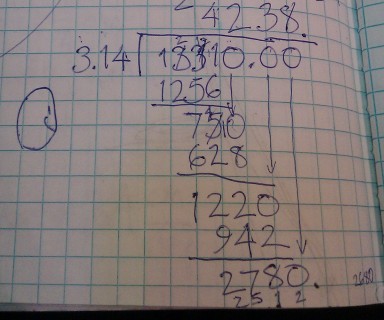 4238.
3.14 13310.00
1256
750
628
1220
942
2780.
2512
2680